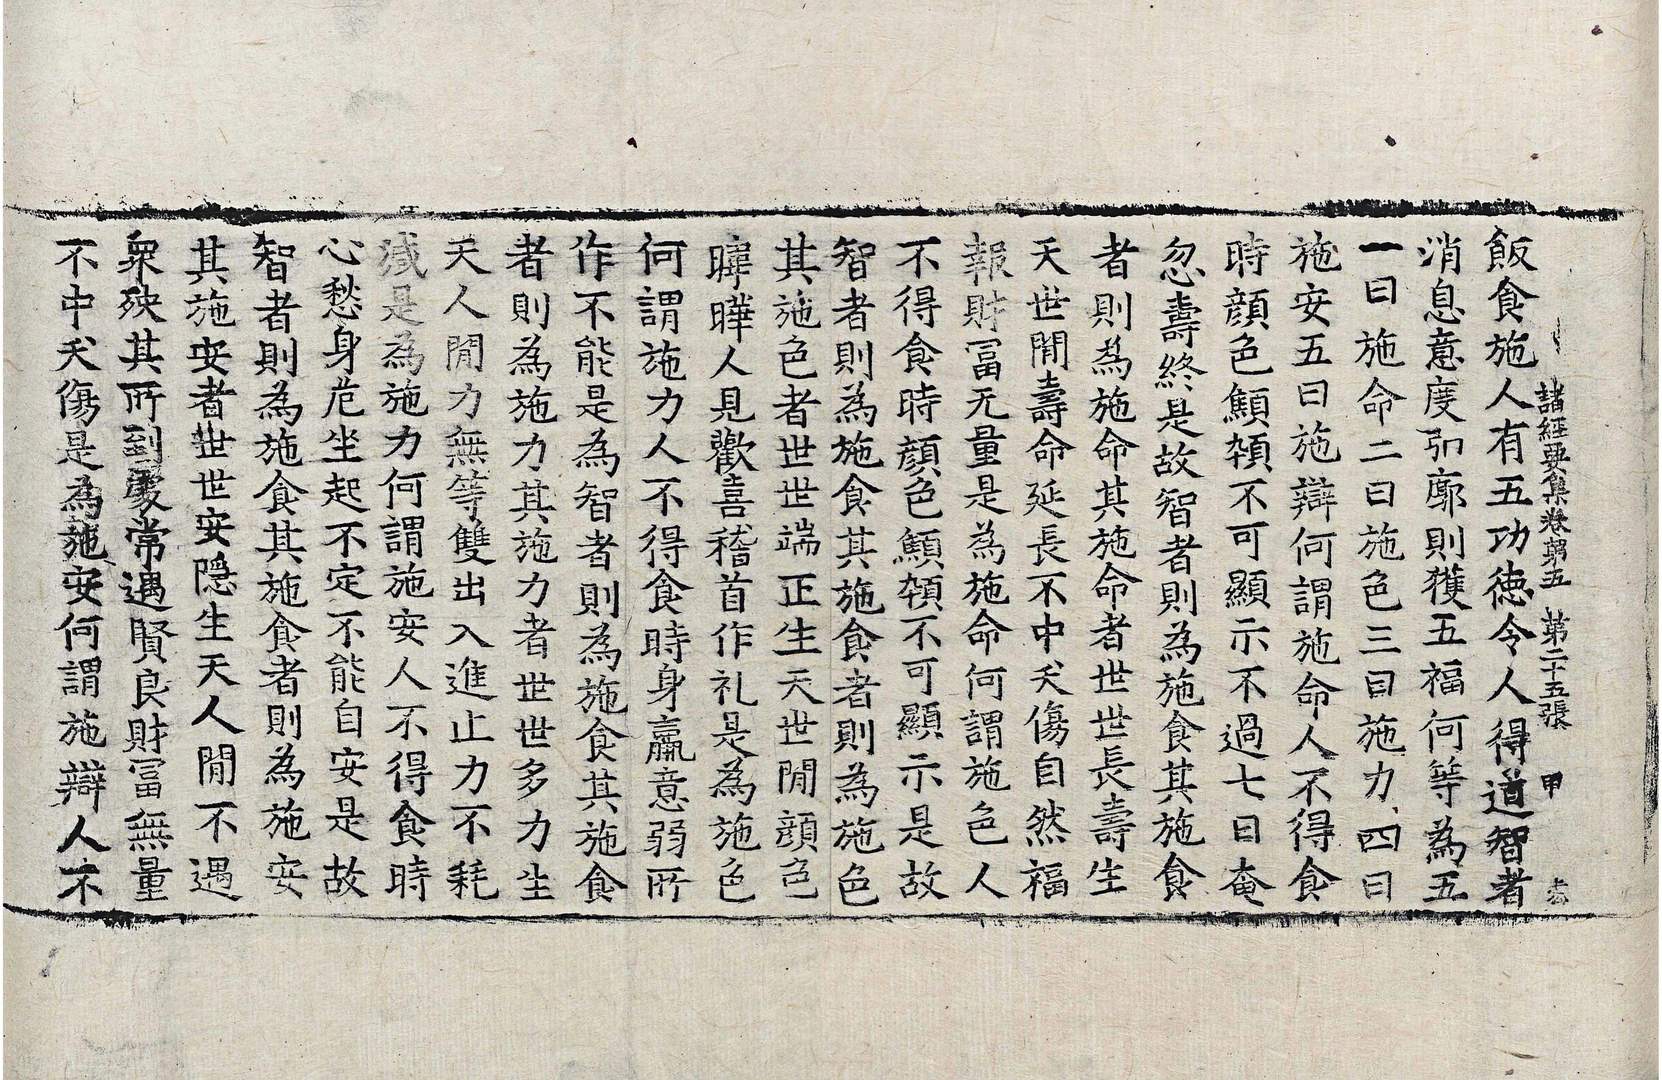 諸經要集卷第五 第二十五張 甲
飯食施人有五功德令人得道智者
消息意度弘廓則獲五福何等為五
一曰施命二曰施色三曰施力四曰
施安五曰施辯何謂施命人不得食
時顏色顦頓不可顯示不過七日奄
忽壽終是故智者則為施食其施食
者則為施命其施命者世世長壽生
天世閒壽命延長不中夭傷自然福
報財冨无量是為施命何謂施色人
不得食時顏色顦頓不可顯示是故
智者則為施食其施食者則為施色
其施色者世世端正生天世閒顏色
暐曄人見歡喜稽首作礼是為施色
何謂施力人不得食時身羸意弱所
作不能是為智者則為施食其施食
者則為施力其施力者世世多力生
天人閒力無等雙出入進止力不耗
減是為施力何謂施安人不得食時
心愁身危坐起不定不能自安是故
智者則為施食其施食者則為施安
其施安者世世安隠生天人閒不遇
衆殃其所到處常遇賢良財冨無量
不中夭傷是為施安何謂施辯人不